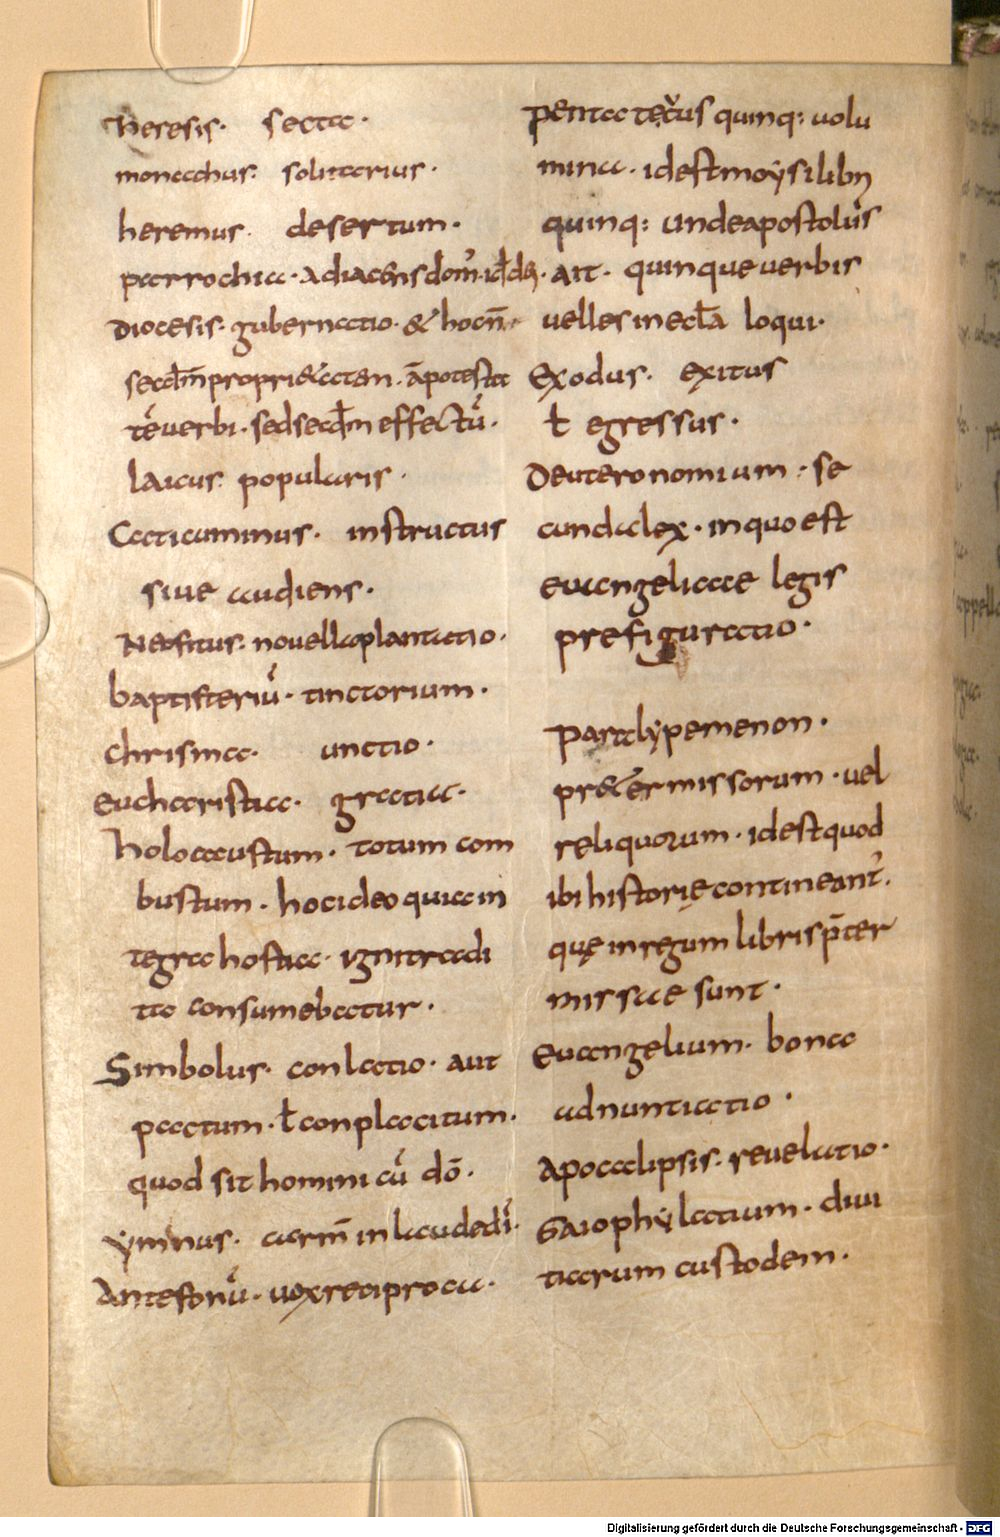 heresis· secta·
monachus· solitarius·
heremus· desertum·
parrochia· adiacens dom̄· id dī·
diocesis· gubernatio· & hoc n̄
secdm̄ propri&atem· a potestat
tē uerbi· sed secdm̄ effectū·
laicus· popularis·
Caticuminus· instructus
siue audiens·
Neofitus· nouella plantatio·
baptisteriū· tinctorium·
chrisma· unctio·
eucharistia· gratia·
holocaustum· totum com
bustum· hoc ideo quia in
tegra hostia· igni tradi
ta consumebatur·
Simbolus· conlatio· aut
pactum· ł conplacitum·
quod sit homini cū dō·
ymnus· carm̄ in laude dī·
Antefonū· uox reciproca·
pentatecus quinq: uolu
mina· id est moysi libri
quinq: unde apostolus
ait· quinque uerbis
uelles in eccła loqui·
exodus· exitus
ł egressus·
deuteronomium· se
cunda lex· in quo est
euangelicae legis
prefiguratio·
paralypemenon·
pr&ermissorum· uel
reliquorum· id est quod
ibi historię contineant̄·
quę in regum libris p̄ter
missae sunt·
euangelium· bona
adnuntiatio·
apocalipsis· reuelatio·
Gaiophylatium· diui
tiarum custodem·
Digitalisierung gefördert durch die Deutsche Forschungsgemeinschaft - DFG